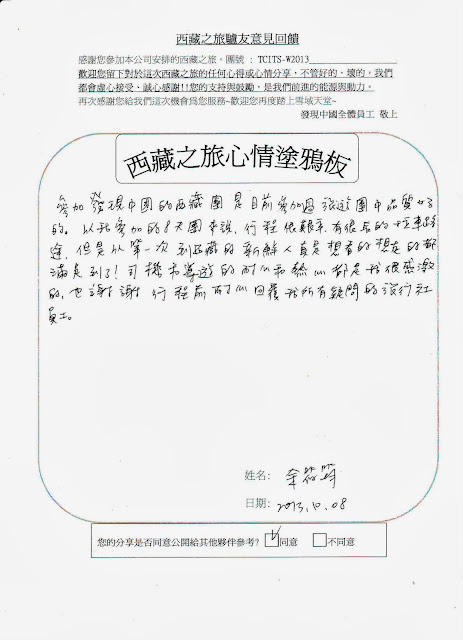 西藏之旅驢友意見回饋
感謝您參加本公司安排的西藏之旅。團號：TCITS-W2013
歡迎您留下對於這次西藏之旅的任何心得或心情分享，不管好的，壞的，我們
都會虛心接受、誠心感謝!!您的支持與鼓勵，是我們前進的能源與動力。
再次感謝您給我們這次機會為您服務~歡迎您再度踏上雪域天堂~
發現中國全體員工 敬上
西藏之旅心情塗鴉板
參加發現中國的西藏團是目前參加過旅遊團中品質好
的。以我參加的8天團來說，行程很艱辛有很長的拉車路
途，但是以第一次到西藏的新鮮人真是想看的想走的都
滿足到了！司機和導遊的耐心和熱心都是我很感激
的，也謝謝行程前耐心回覆我所有疑問的旅行社
員工。
姓名:
日期: 2013.10.08
您的分享是否同意公開給其他夥伴參考? ☑同意 □不同意